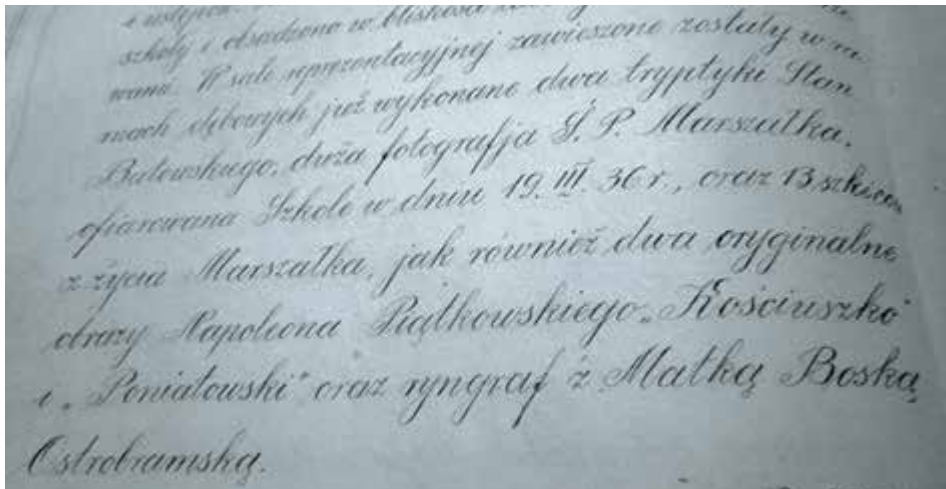 szkoły i obsadzono w bliskości
wana. W sale reprezentacyjnej zawieszone zostały w ra-
mach dębowych już wykonane dwa tryptyki Stan
Batowskiego, duża fotografja Ś. P. Marszałka,
ofiarowana Szkole w dniu 19. III. 36 r., oraz 13 szkiców
z życia Marszałka, jak również dwa oryginalne
obrazy Napoleona Piątkowskiego „Kościuszko"
i „Poniatowski" oraz ryngraf z Matką Boską
Ostrobramską.